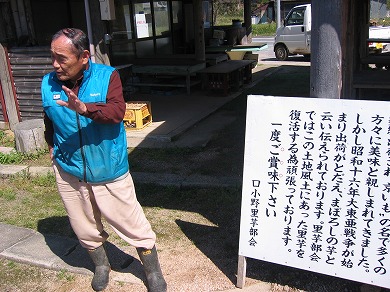 方々に美味と親しまれてきました。
しかし昭和十六年大東亜戦争が始
まり出荷がとだえ、まぼろしの芋と
云い伝えられております。里芋部会
ではこの土地風土にあった里芋を
復活する為頑張っております。
一度ご賞味下さい
口小野里芋部会